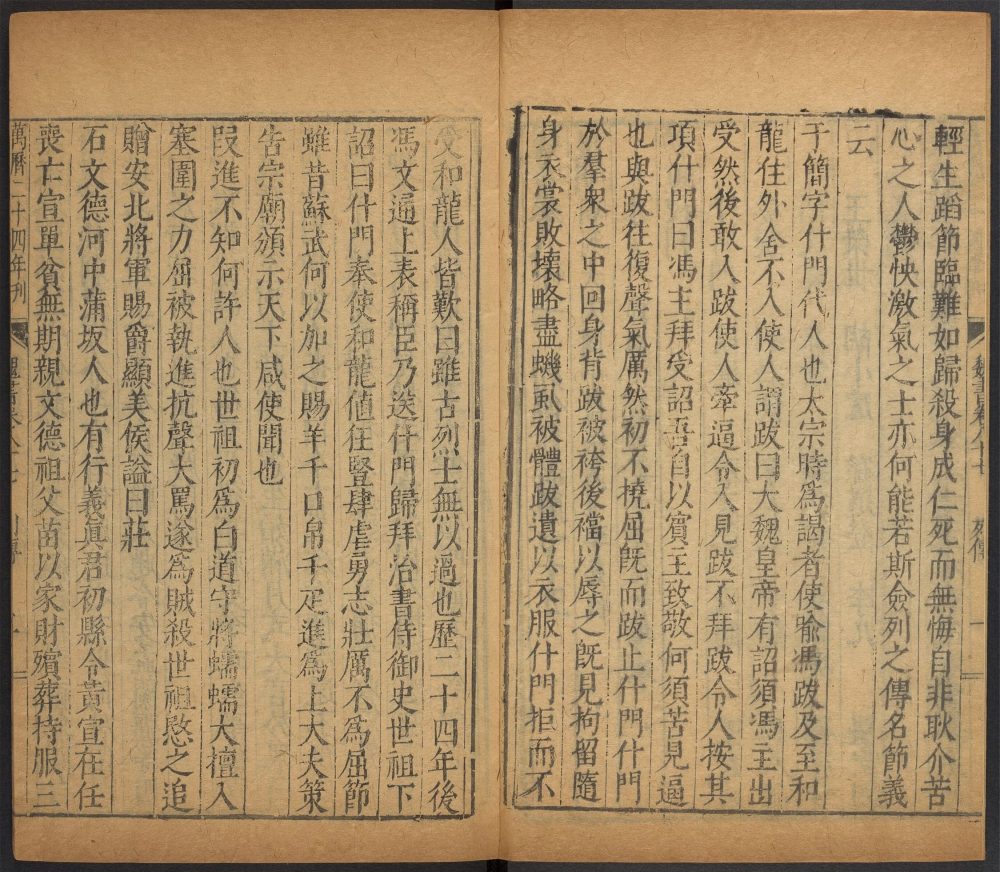 輕生蹈節臨難如歸殺身成仁死而無悔自非耿介苦
心之人鬱怏激氣之士亦何能若斯僉列之傳名節義
云
于簡字什門代人也太宗時爲謁者使喻馮跋及至和
龍住外舍不入使人謂跋曰大魏皇帝有詔須馮主出
受然後敢入跋使人牽逼令入見跋不拜跋令人按其
項什門曰馮主拜受詔吾自以賓主致敬何須苦見逼
也與跋往復聲氣厲然初不撓屈既而跋止什門什門
於羣衆之中回身背跋被袴後襠以辱之既見拘留隨
身衣裳敗壞略盡蟣虱被體跋遺以衣服什門拒而不
魏書卷八十七
列傳
一
受和龍人皆歎曰雖古烈士無以過也歷二十四年後
馮文通上表稱臣乃送什門歸拜治書侍御史世祖下
詔曰什門奉使和龍值狂豎肆虐勇志壯厲不爲屈節
雖昔蘇武何以加之賜羊千口帛千疋進爲上大夫策
告宗廟頒示天下咸使聞也
段進不知何許人也世祖初爲白道守將蠕蠕大檀入
塞圍之力屈被執進抗聲大罵遂爲賊殺世祖愍之追
贈安北將軍賜爵顯美侯謚曰莊
石文德河中蒲坂人也有行義眞君初縣令黃宣在任
喪亡宣單貧無期親文德祖父苗以家財殯葬持服三
萬曆二十四年刊